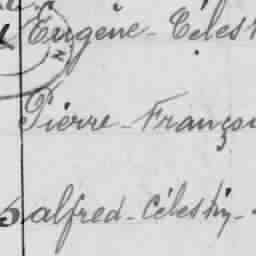 Eugène - Célest
Pierre - Franço
alfred - Célestin -